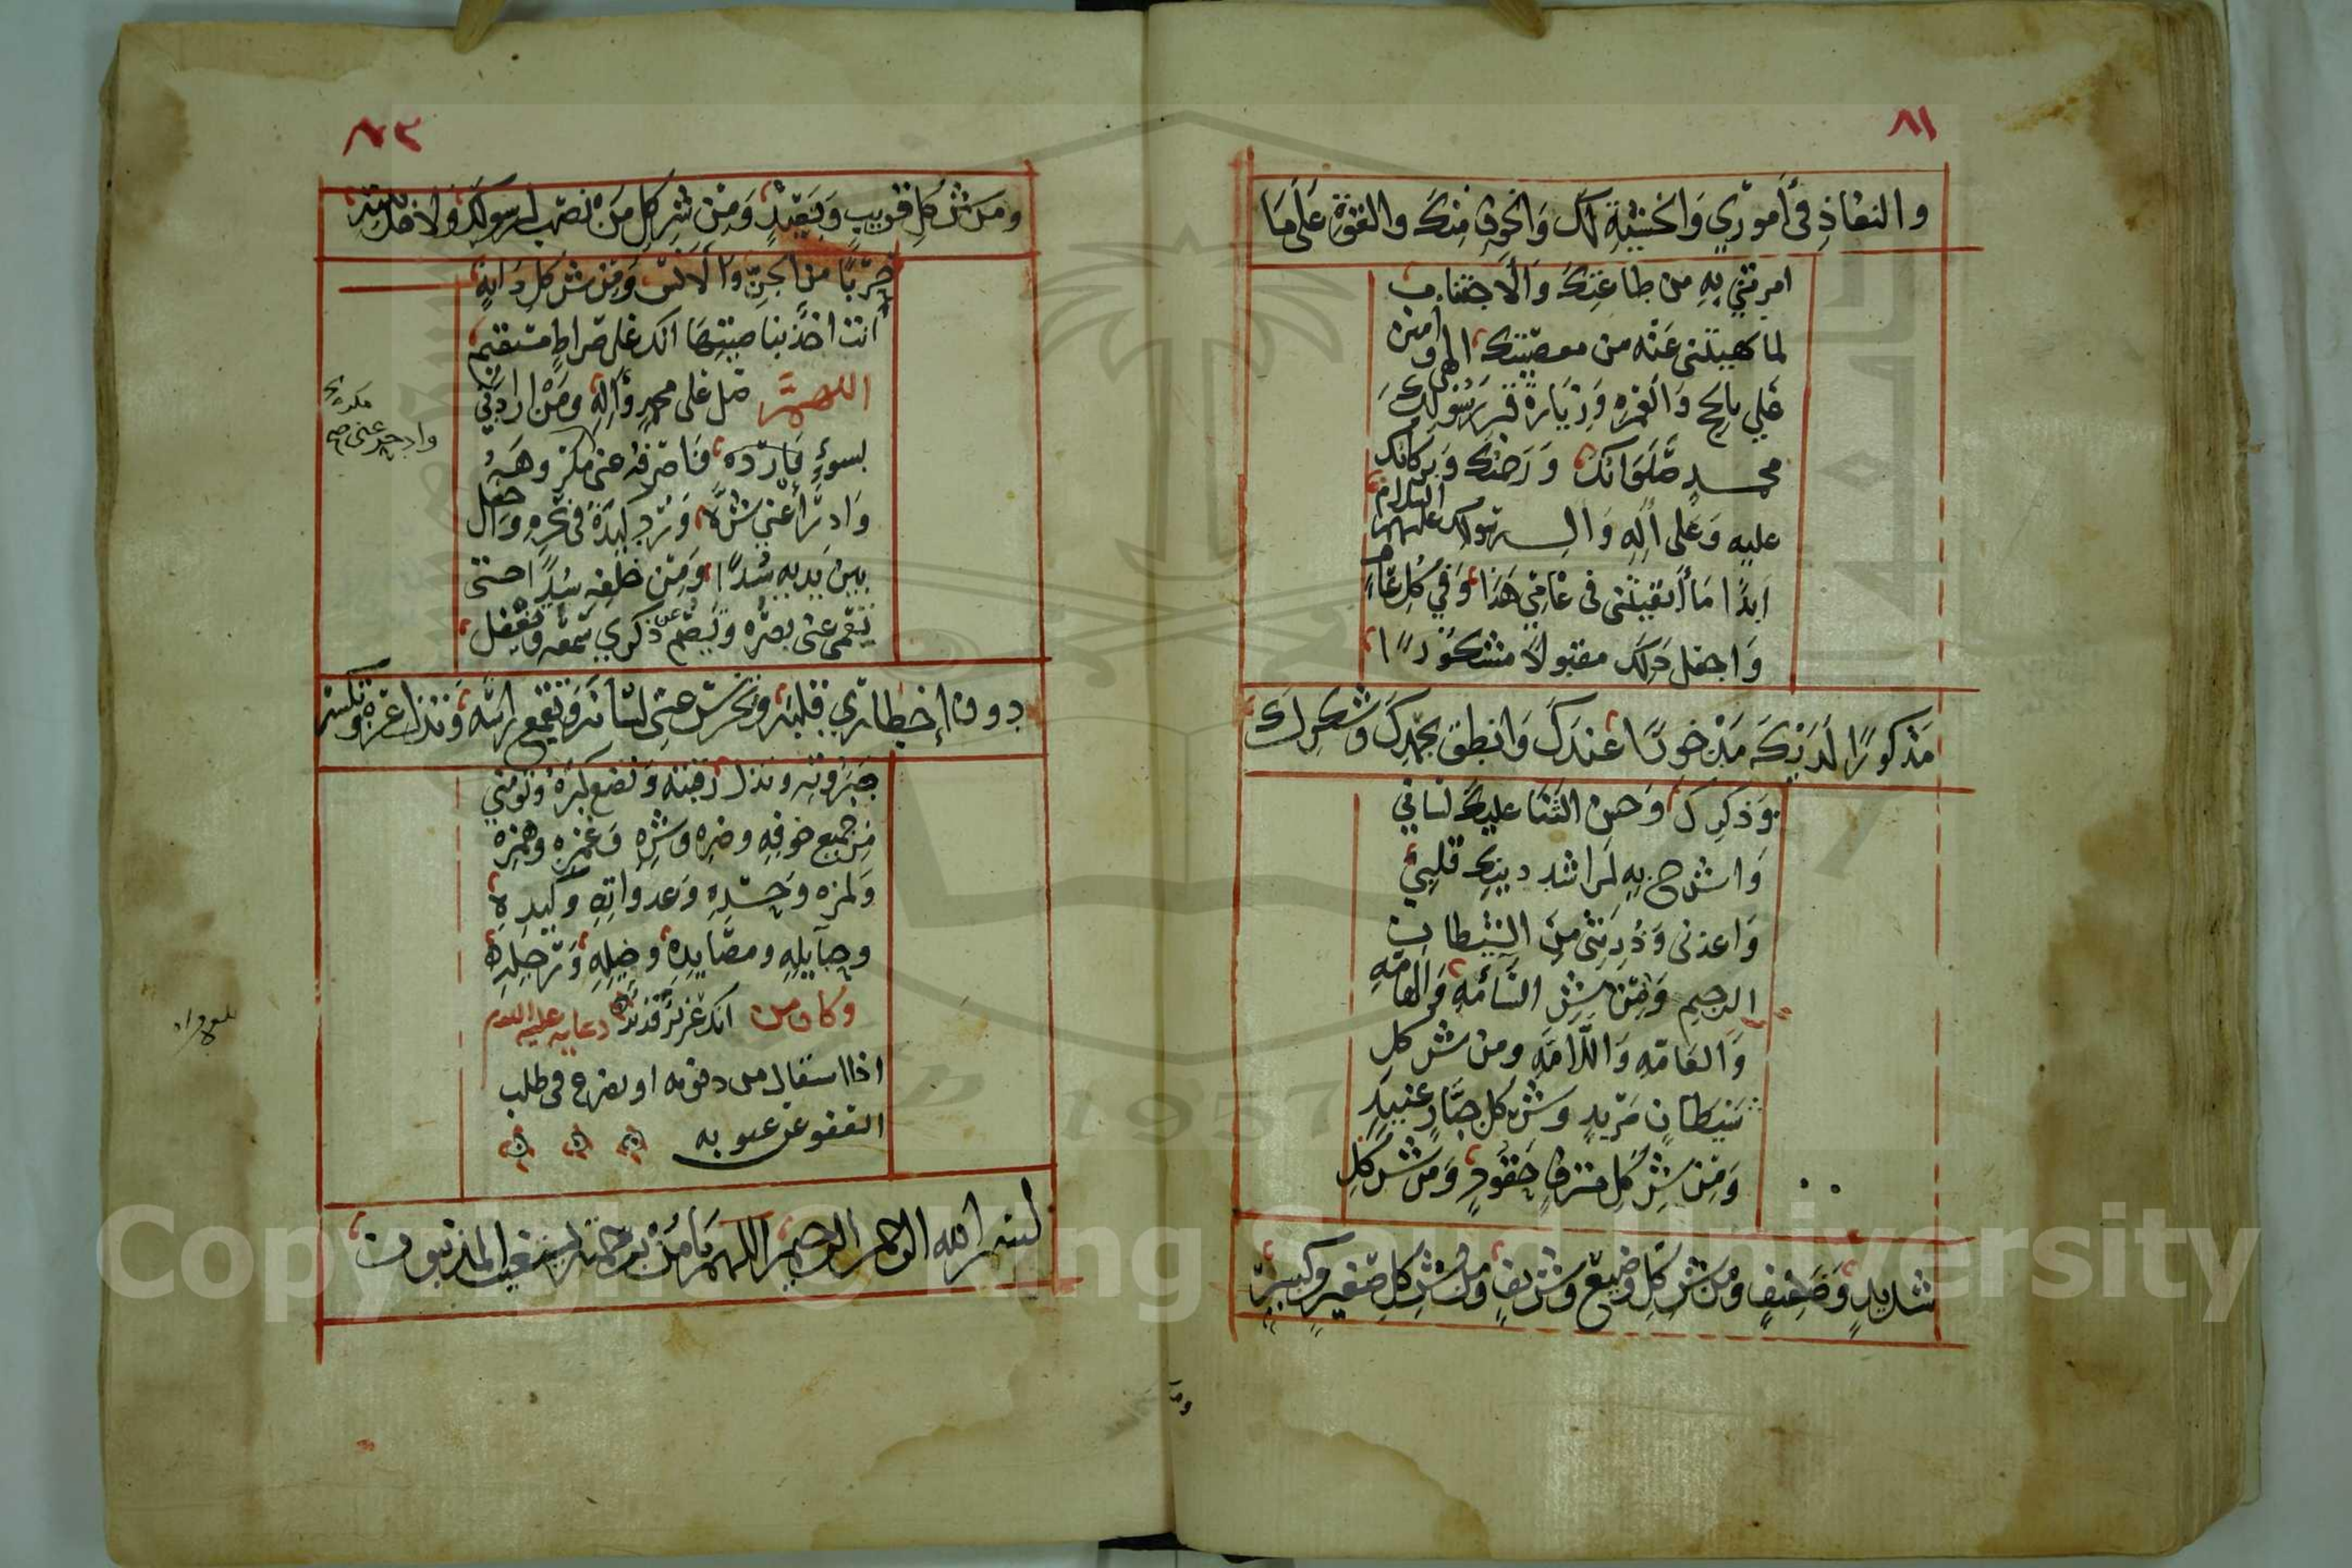 ٨١
والنفاذِ في أموري وَالخشيةِ لَكَ وَالخوفِ مِنكَ والقوّةِ عَلَى مَا
امرتني بِهِ من طاعَتِكَ وَالاجتنابِ
لما نهيتني عَنْه من معصيتك، اللهم وامنن
عَلي بالحج وَالعُمرةِ وَزيَارةِ قبرِ رَسُولِكَ
محمدٍ صَلَوَاتك وَرَحمتك وَبَركاتك
عليهِ وَعَلَى آلِهِ وَآل رسولك عليهم السلام
ابدًا مَا أبقيتني في عَامِي هَذَا، وَفي كُلِ عَامٍ
وَاجعَل ذَلِكَ مقبولاً مشكُورًا،
مَذكورًا لَدَيْكَ مَذْخورًا عندَكَ، وَانطِق بحَمدِكَ وَشُكرِكَ
وَذكرِكَ وَحسن الثنَا عليك لسَاني
وَاشرح بِهِ لمَراشد دينِكَ قلبِي
وَاعذني وَذُرِّيتي مِنَ الشيطانِ
الرجيم وَمِنْ شرِّ السَّامَّةِ وَالهامّةِ
وَالعَامّةِ وَاللّامّةِ ومن شرِّ كل
شيطانٍ مَريدٍ وشرِّ كل جبّارٍ عنيدٍ
وَمِن شرِّ كُلِ مترفٍ حَفُودٍ، وَمن شرِّ كلِ
شديدٍ، وَضعيفٍ ومن شرِّ كلِ وَضيعٍ وشريفٍ، ومن شرِّ كلِ صَغيرٍ وكبيرٍ،
ومن
٨٢
ومن شرِّ كُلِ قريبٍ وَبَعيدٍ، وَمِن شرِّ كل مَنْ نصَب لرسولِكَ، ولاهل بيته
حَربًا من الجنِّ والانس، وَمِن شرِّ كلِ دَابةٍ
انت اخذ بناصيتهَا انك على صراطٍ مستقيم،
اللهمّ صَل على محمدٍ وَآلِهِ، وَمَنْ ارادني
بسوءٍ فارده، فاصرفهُ عني
وَادرَأ عني شرّهُ، وَرُدّ كيدَهُ في نحرِهِ، وَاجعل
بين يديه سُدًّا، وَمِن خلفه سُدًّا حتى
تعمي عني بصرَه وَتُصِم عن ذكري سَمعَه وتقفل،
دون إخطاري قلبَهُ، وتخرسَ عني لسَانَه، وَتقمع رَاسَهُ، وَتذل عزه، وتكسر
جَبَرُوتَه وتذل رقبته وَتفسَخ كبرَهُ، وتؤمنني
مِن جميع ضرّه وشرِّهِ وَغَمزِهِ وهمزِهِ
وَلمزه وحَسَدِهِ وَعداوتِهِ وَكيدِهِ،
وحبائلِهِ ومصايدِهِ، وَرَجِلِهِ،
انك عزيزٌ قدير وكان من دعايه عليه السلام
اذا استقال من ذنوبه او تضرع في طلب
العفو عن عيوبه
بسم الله الرحمن الرحيم، اللهم يَا مَنْ برحمته يستغيث المذنبون،